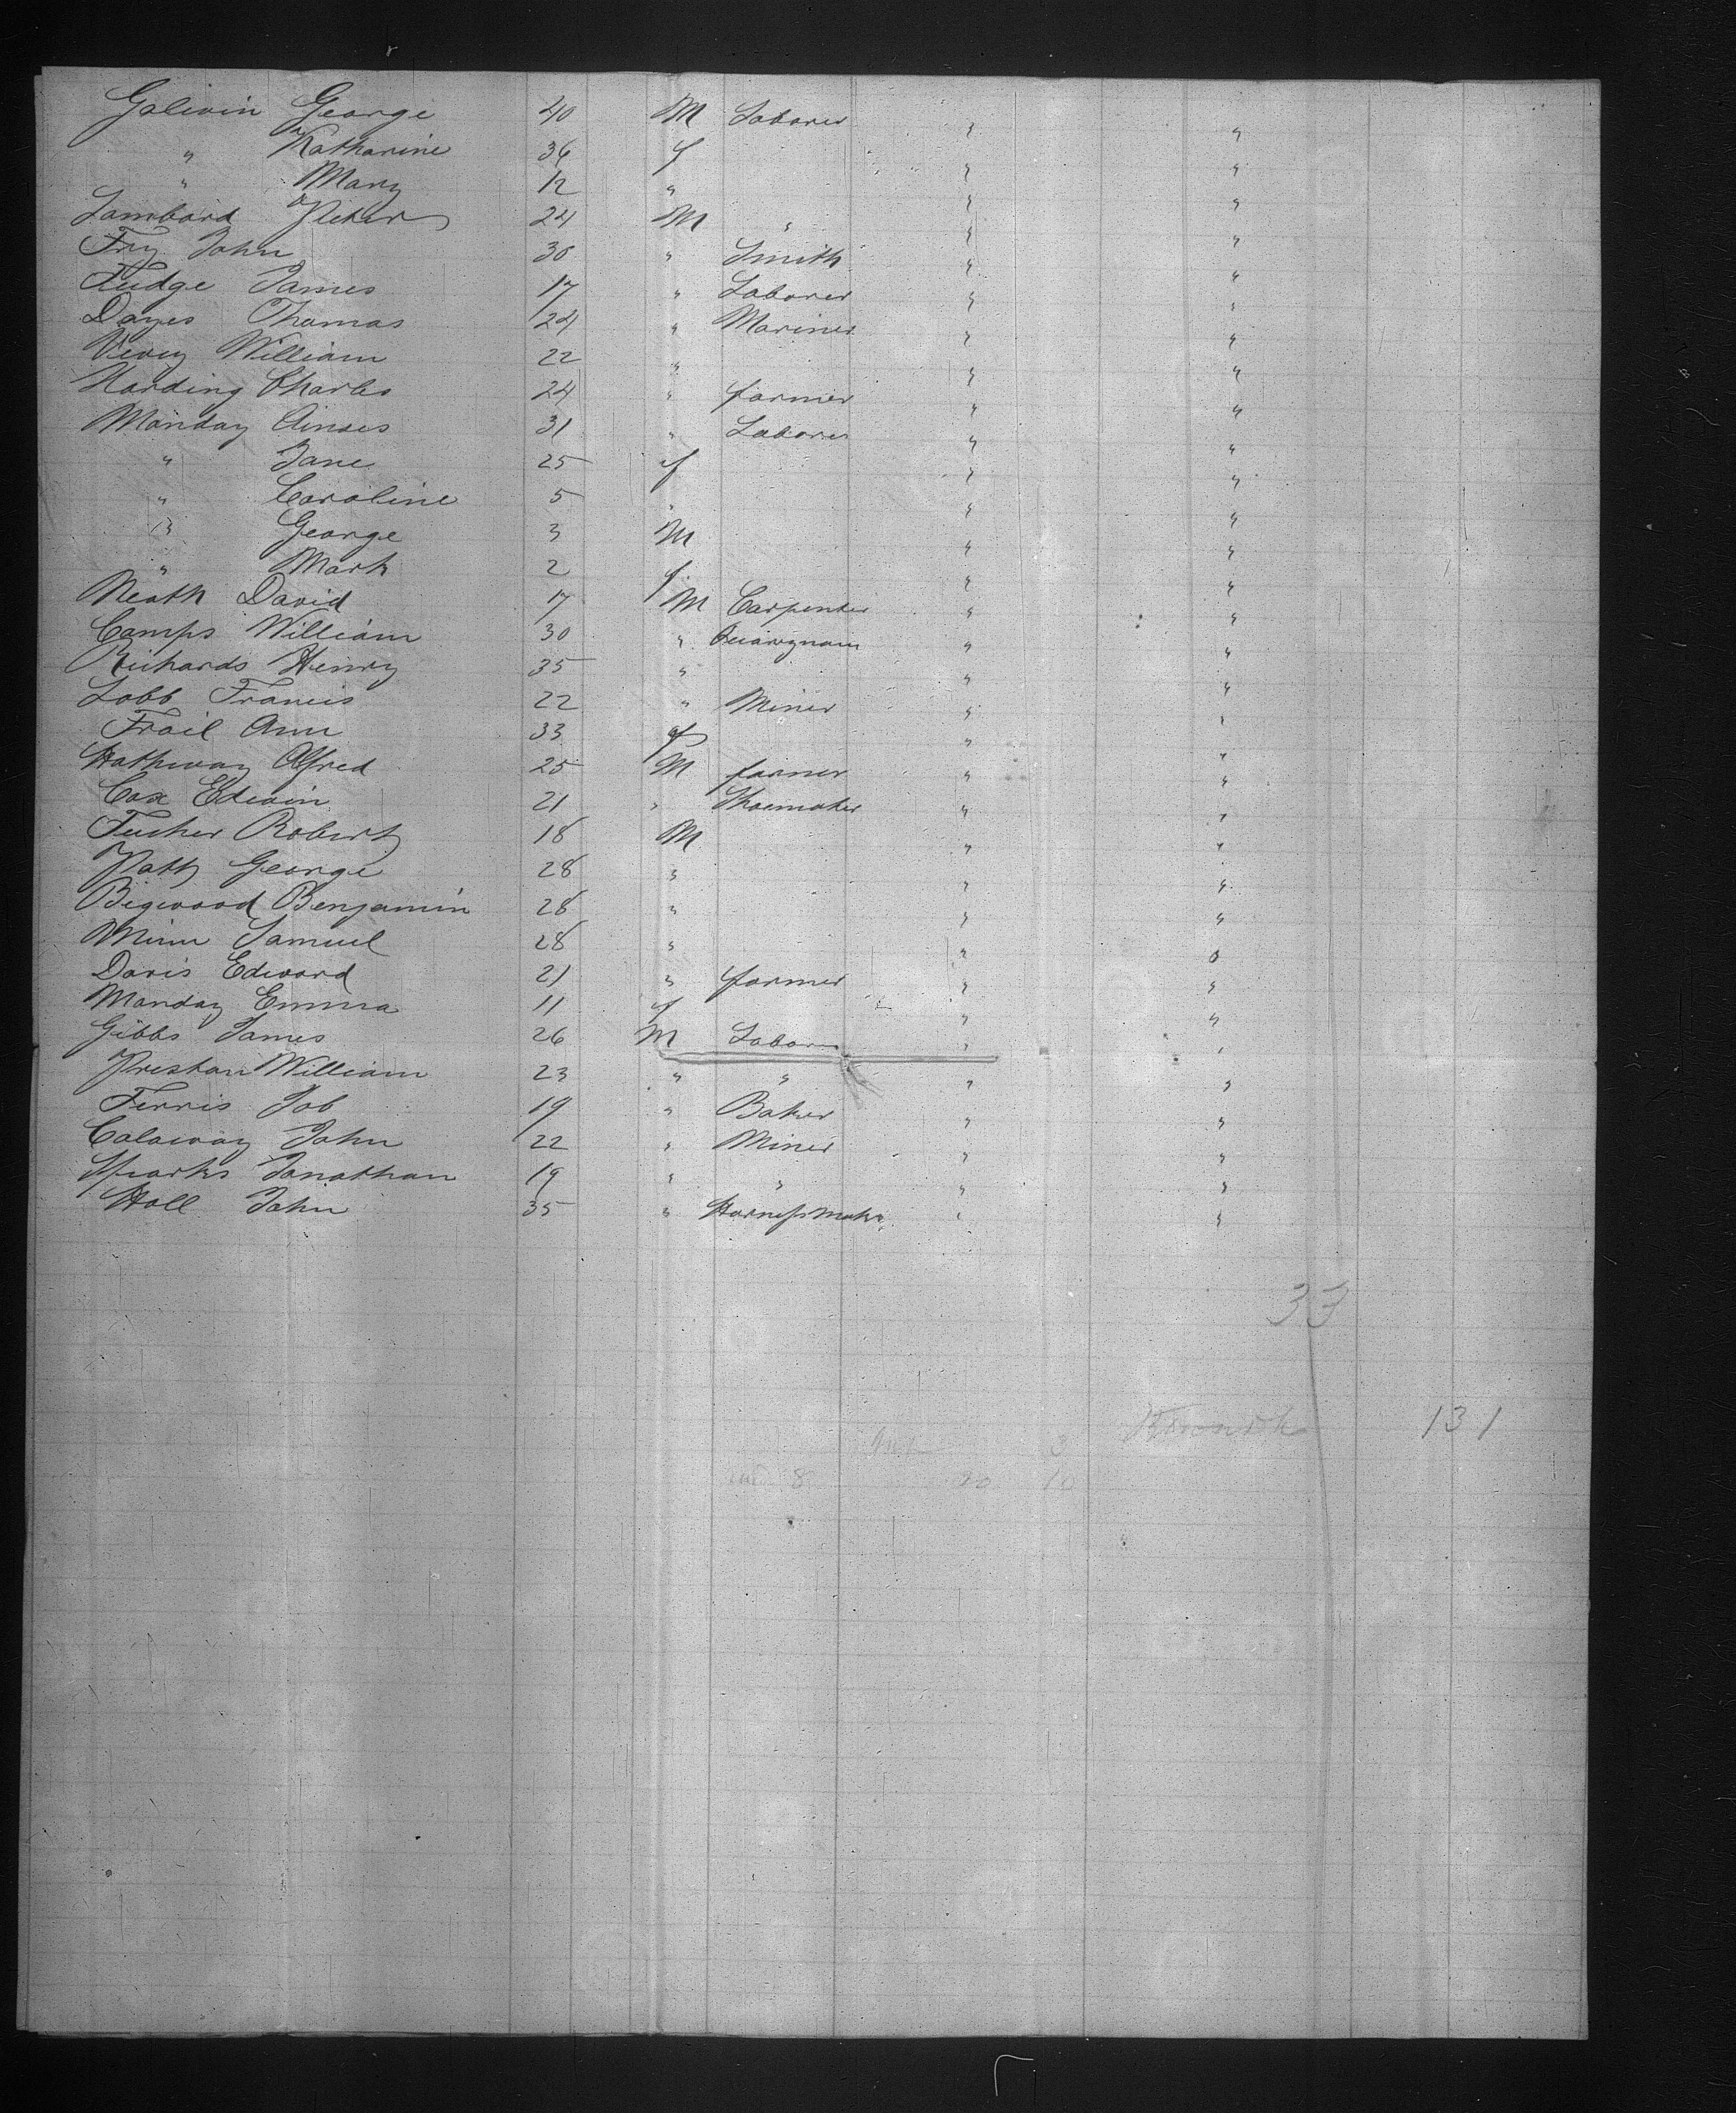 Galivin George 40 M Laborer " "
" Katharine 36 f " "
" Mary 12 " " "
Lambard Peter 24 M " " "
Fry John 30 " Smith " "
Fudge James 17 " Laborer " "
Dayes Thomas 24 " Mariner " "
Vevey William 22 " " "
Harding Charles 24 " farmer " "
Manday 31 " Laborer " "
" Jane 25 f " "
" Caroline 5 " " "
" George 3 M " "
" Mark 2 f " "
Neath David 17 M Carpenter " "
Camps William 30 " " "
Richards Henry 35 " " "
Lobb Francis 22 " Miner " "
Frail Ann 33 f " "
Hathway Alfred 25 M farmer " "
Cox Edwin 21 " Shoemaker " "
Tucker Robert 18 M " "
Patty George 28 " " "
Bigwood Benjamin 28 " " "
Minn Samuel 28 " " "
Davis Edward 21 " farmer " "
Manday Emma 11 f " "
Gibbs James 26 M Labor " "
Preston William 23 " " " "
Ferris Job 19 " Baker " "
Calaway John 22 " Miner " "
Sparks Jonathan 19 " " " "
Hall John 35 " Harness Maker " "
33
3 131
8 20 10